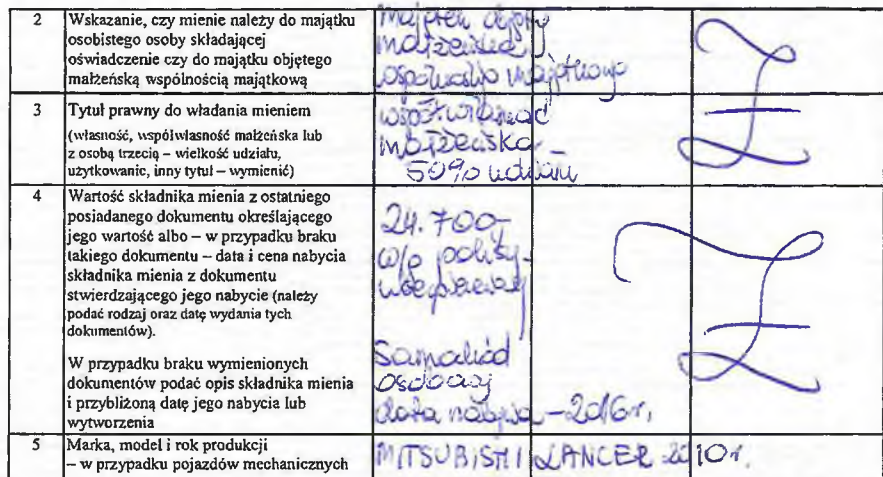 2 Wskazanie, czy mienie należy do majątku
osobistego osoby składającej
oświadczenie czy do majątku objętego
małżeńską wspólnością majątkową
majątek objęty
małżeńską
wspólnością majątkową
3 Tytuł prawny do władania mieniem
(własność, współwłasność małżeńska lub
z osobą trzecią – wielkość udziału,
użytkowanie, inny tytuł – wymienić)
współwłasność
małżeńska –
50% udziału
4 Wartość składnika mienia z ostatniego
posiadanego dokumentu określającego
jego wartość albo – w przypadku braku
takiego dokumentu – data i cena nabycia
składnika mienia z dokumentu
stwierdzającego jego nabycie (należy
podać rodzaj oraz datę wydania tych
dokumentów).
W przypadku braku wymienionych
dokumentów podać opis składnika mienia
i przybliżoną datę jego nabycia lub
wytworzenia
24.700,-
w/g polisy
Samochód
osobowy
data nabycia – 2016r,
5 Marka, model i rok produkcji
– w przypadku pojazdów mechanicznych
MITSUBISHI LANCER 2010r.